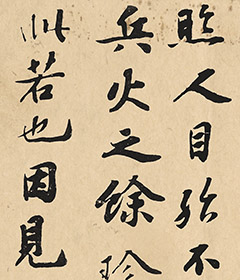 照人目殆不
兵火之餘珍
此若也因見